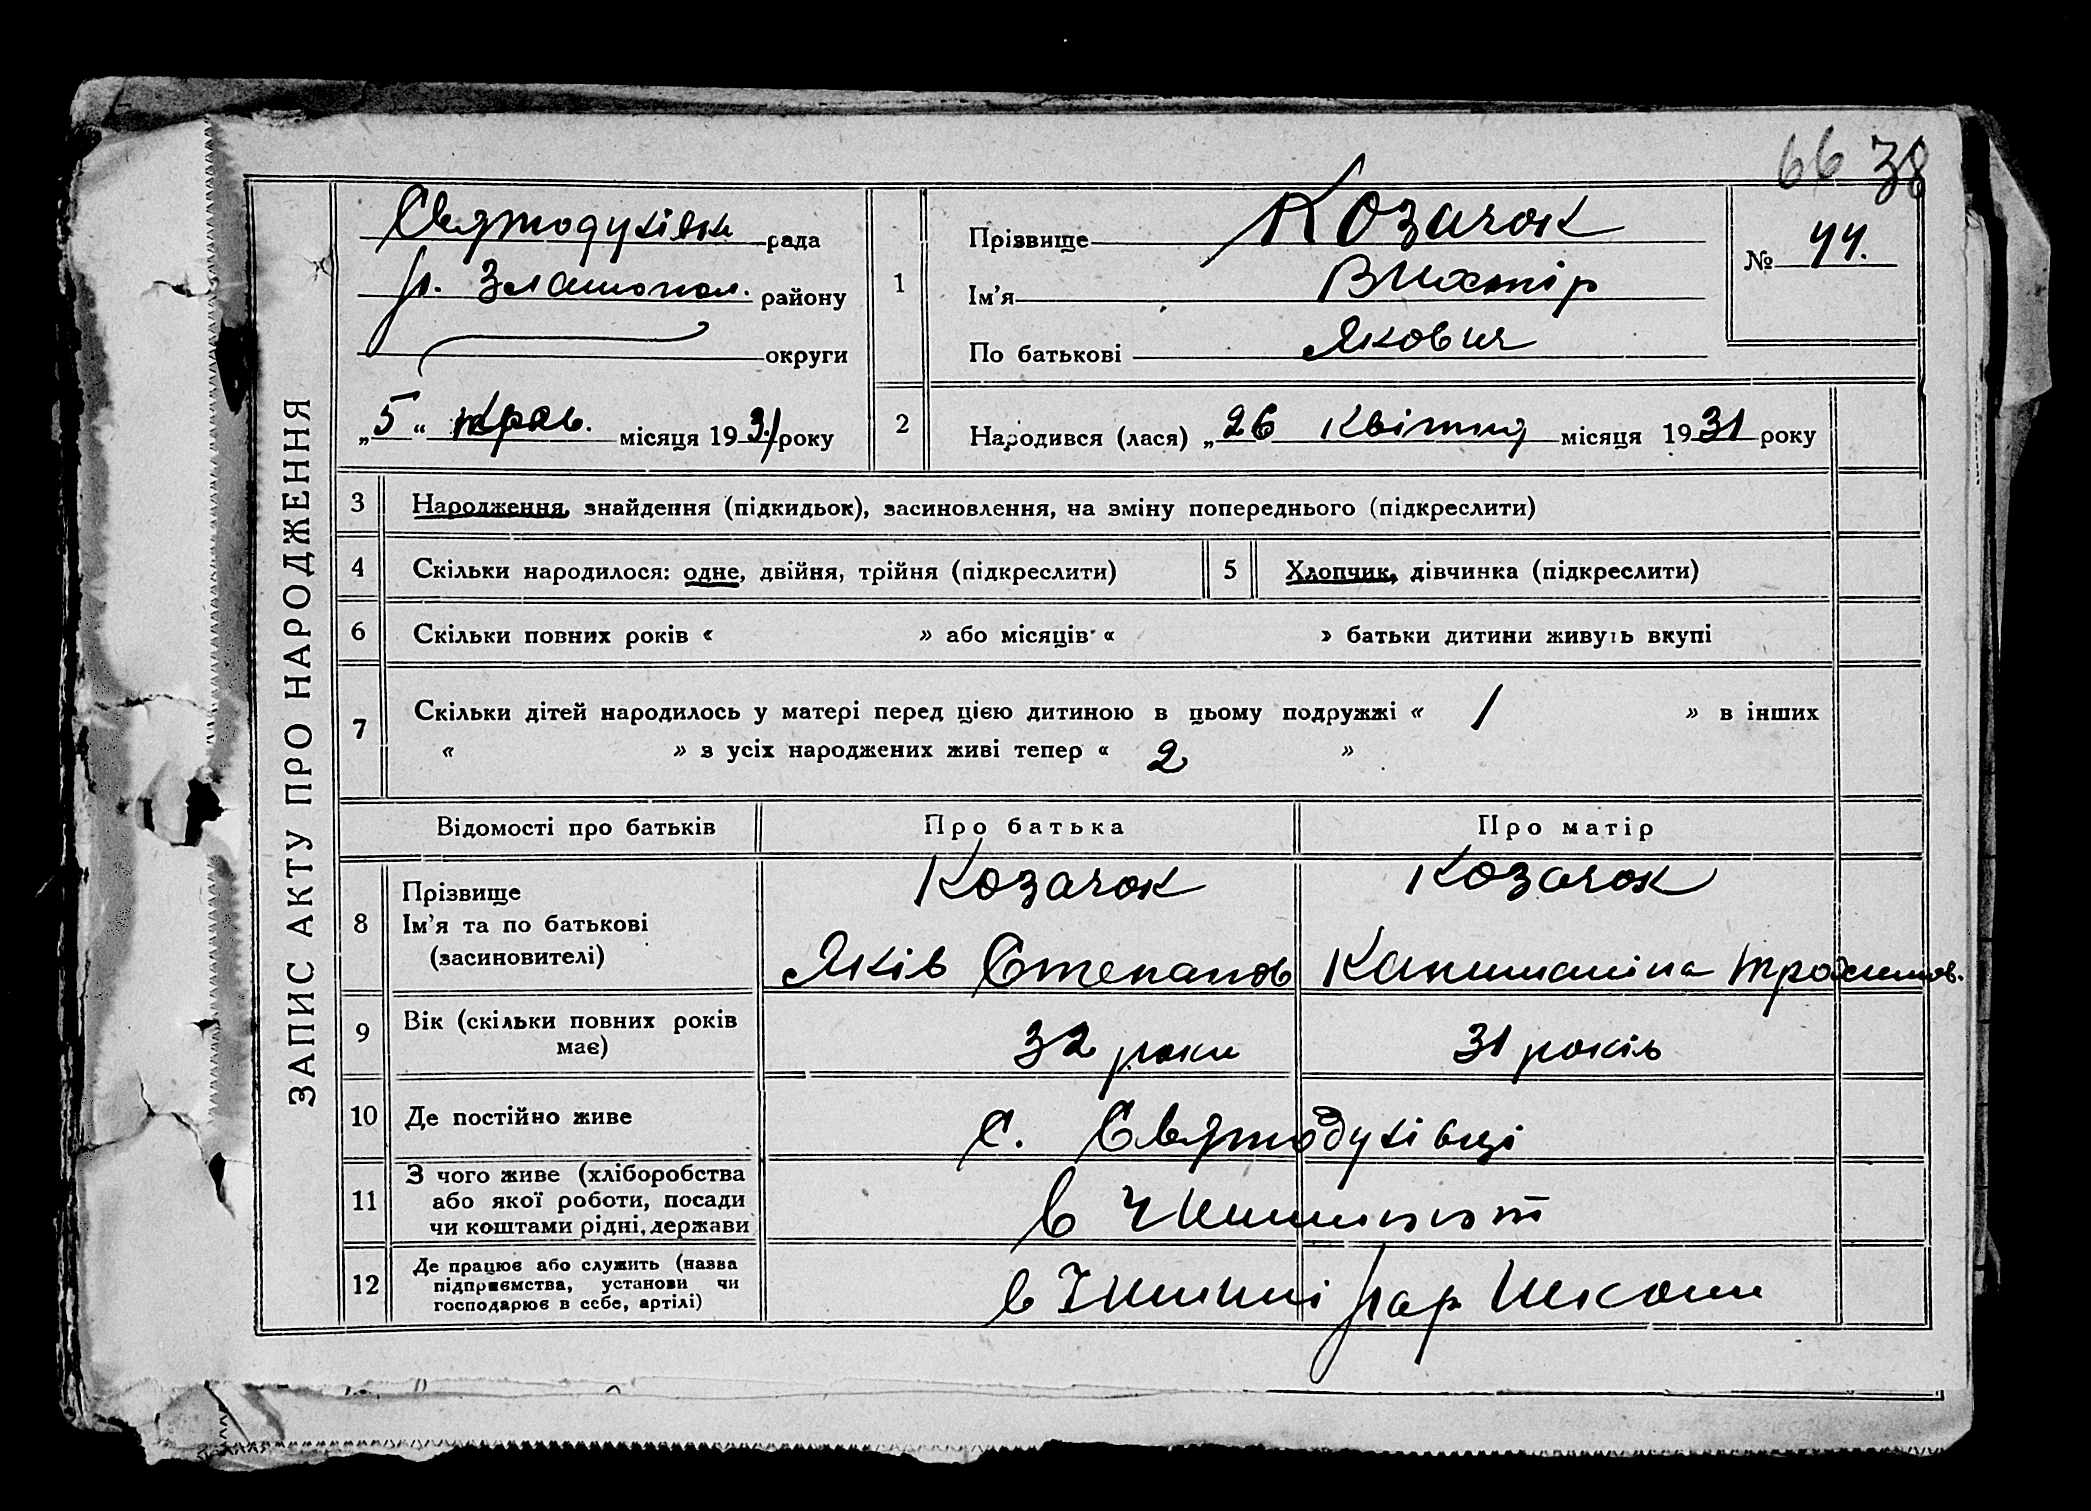 66 38
Святодухівськ рада
р. Златопол. району
округи
„5“ трав. місяця 1931 року
1
Прізвище Козачок
Ім'я Вихтір
По батькові Якович
№ 44.
2
Народився (лася) „26 Квітня місяця 1931 року
ЗАПИС АКТУ ПРО НАРОДЖЕННЯ
3 Народження, знайдення (підкидьок), засиновлення, на зміну попереднього (підкреслити)
4 Скільки народилося: одне, двійня, трійня (підкреслити)
5 Хлопчик, дівчинка (підкреслити)
6 Скільки повних років « » або місяців « » батьки дитини живуть вкупі
7 Скільки дітей народилось у матері перед цією дитиною в цьому подружжі « 1 » в інших
« » з усіх народжених живі тепер « 2 »
Відомості про батьків Про батька Про матір
8 Прізвище
Ім'я та по батькові
(засиновителі)
Козачок Козачок
Яків Степанов
9 Вік (скільки повних років
має)
32 роки 31 років
10 Де постійно живе с. Святодухівці
11 З чого живе (хліборобства
або якої роботи, посади
чи коштами рідні, держави
в
12 Де працює або служить (назва
підприємства, установи чи
господарює в себе, артілі)
в